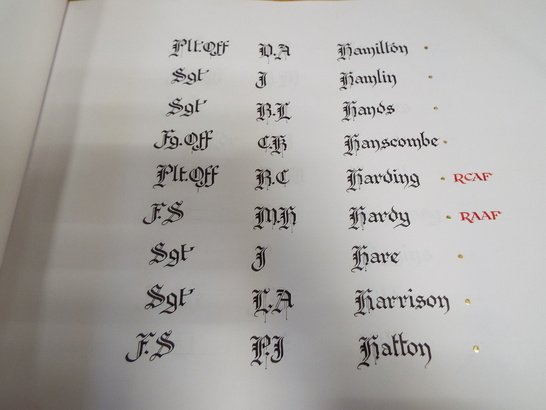 Plt.Off D.A Hamilton
Sgt J Hamlin
Sgt B.L Hands
Fg.Off C.H Hanscombe
Plt.Off R.C Harding RCAF
F.S M.H Hardy RAAF
Sgt J Hare
Sgt L.A Harrison
F.S P.J Hatton